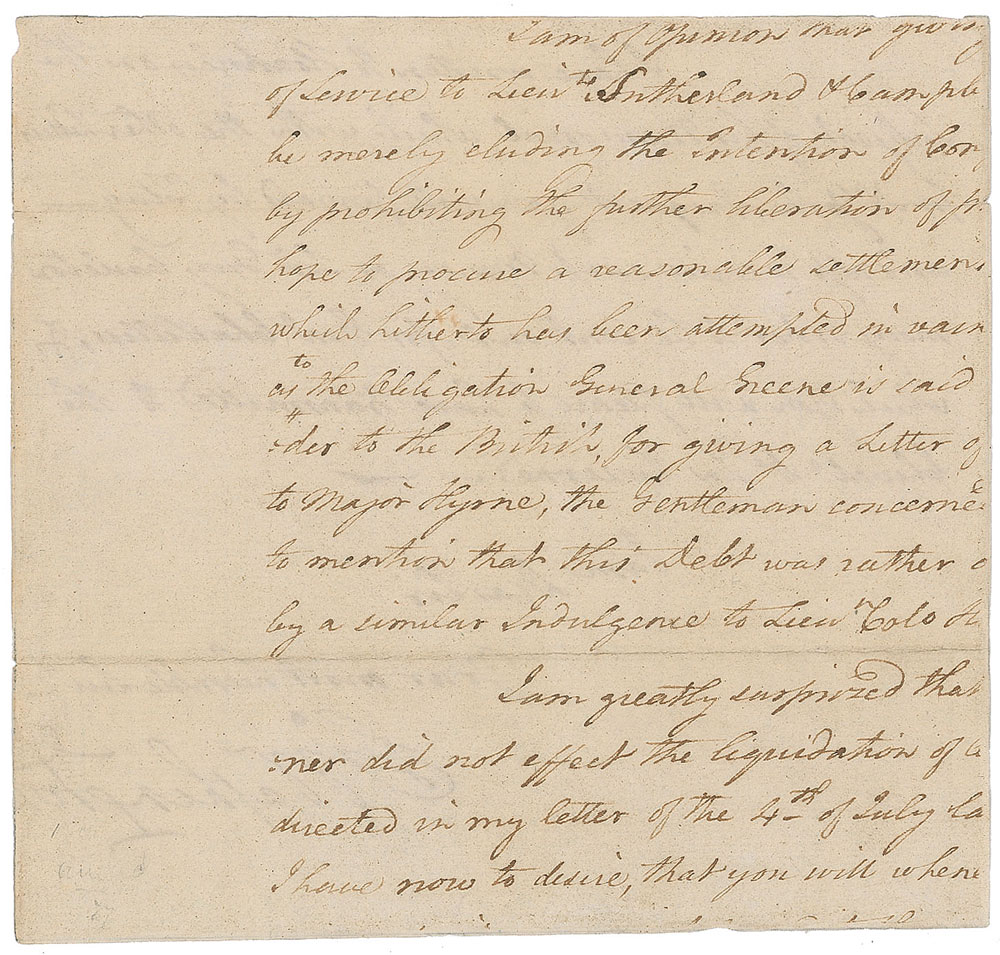 I am of Opinion that giving
of Service to Lieuts Sutherland & Campbe
be merely eluding the Intention of Con
by prohibiting the further liberation of pr
hope to procure a reasonable settlemen
which hitherto has been attempted in vain
to
as the Obligation General Greene is said
:der to the British, for giving a Letter o
to Major Hyrne, the Gentleman concerne
to mention that this Debt was rather
by a similar Indulgence to Lieut Colo
I am greatly surprized that
:ner did not effect the liquidation of
directed in my letter of the 4th of July la
I have now to desire, that you will when